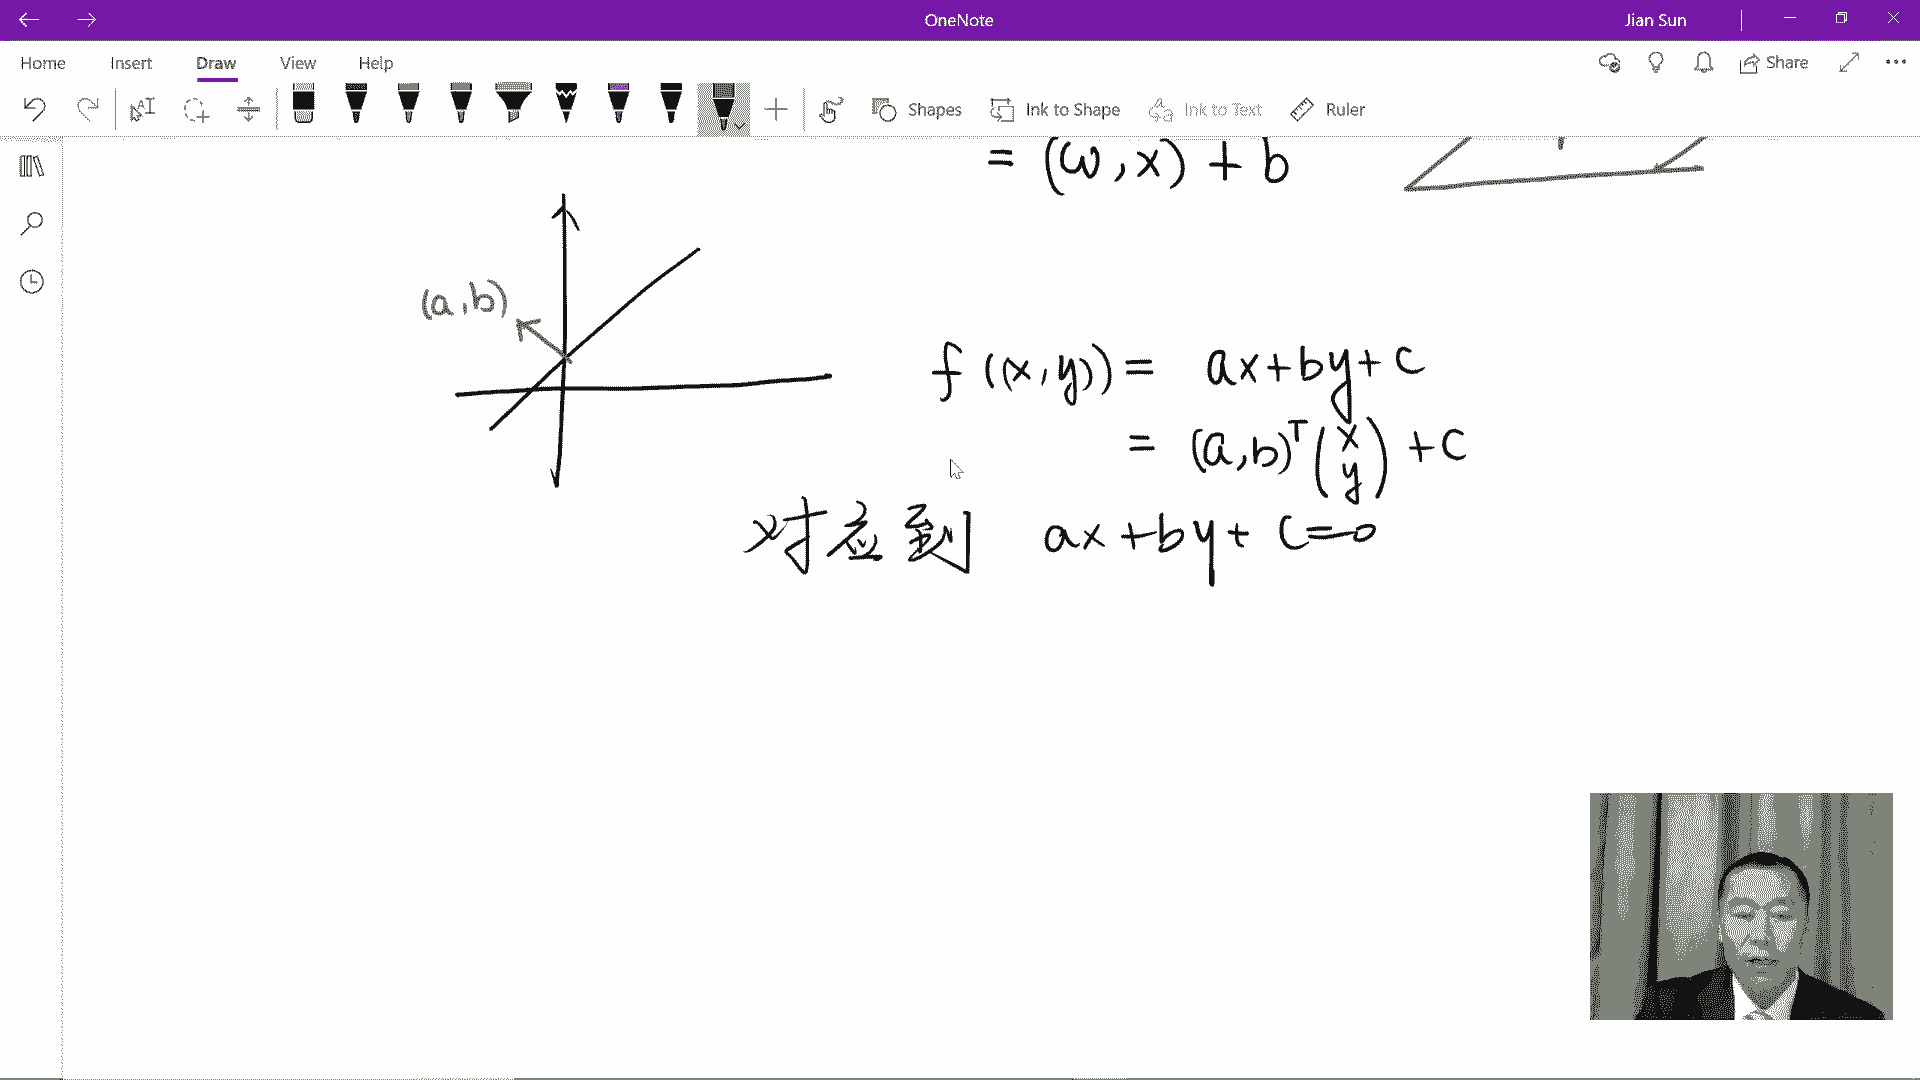 OneNote
Jian Sun
Home Insert Draw View Help
Share
Shapes Ink to Shape Ink to Text Ruler
= (ω, x) + b
(a, b)
f((x, y)) = ax+by+c
= (a, b)ᵀ (x y) + c
对应到 ax+by+c=0